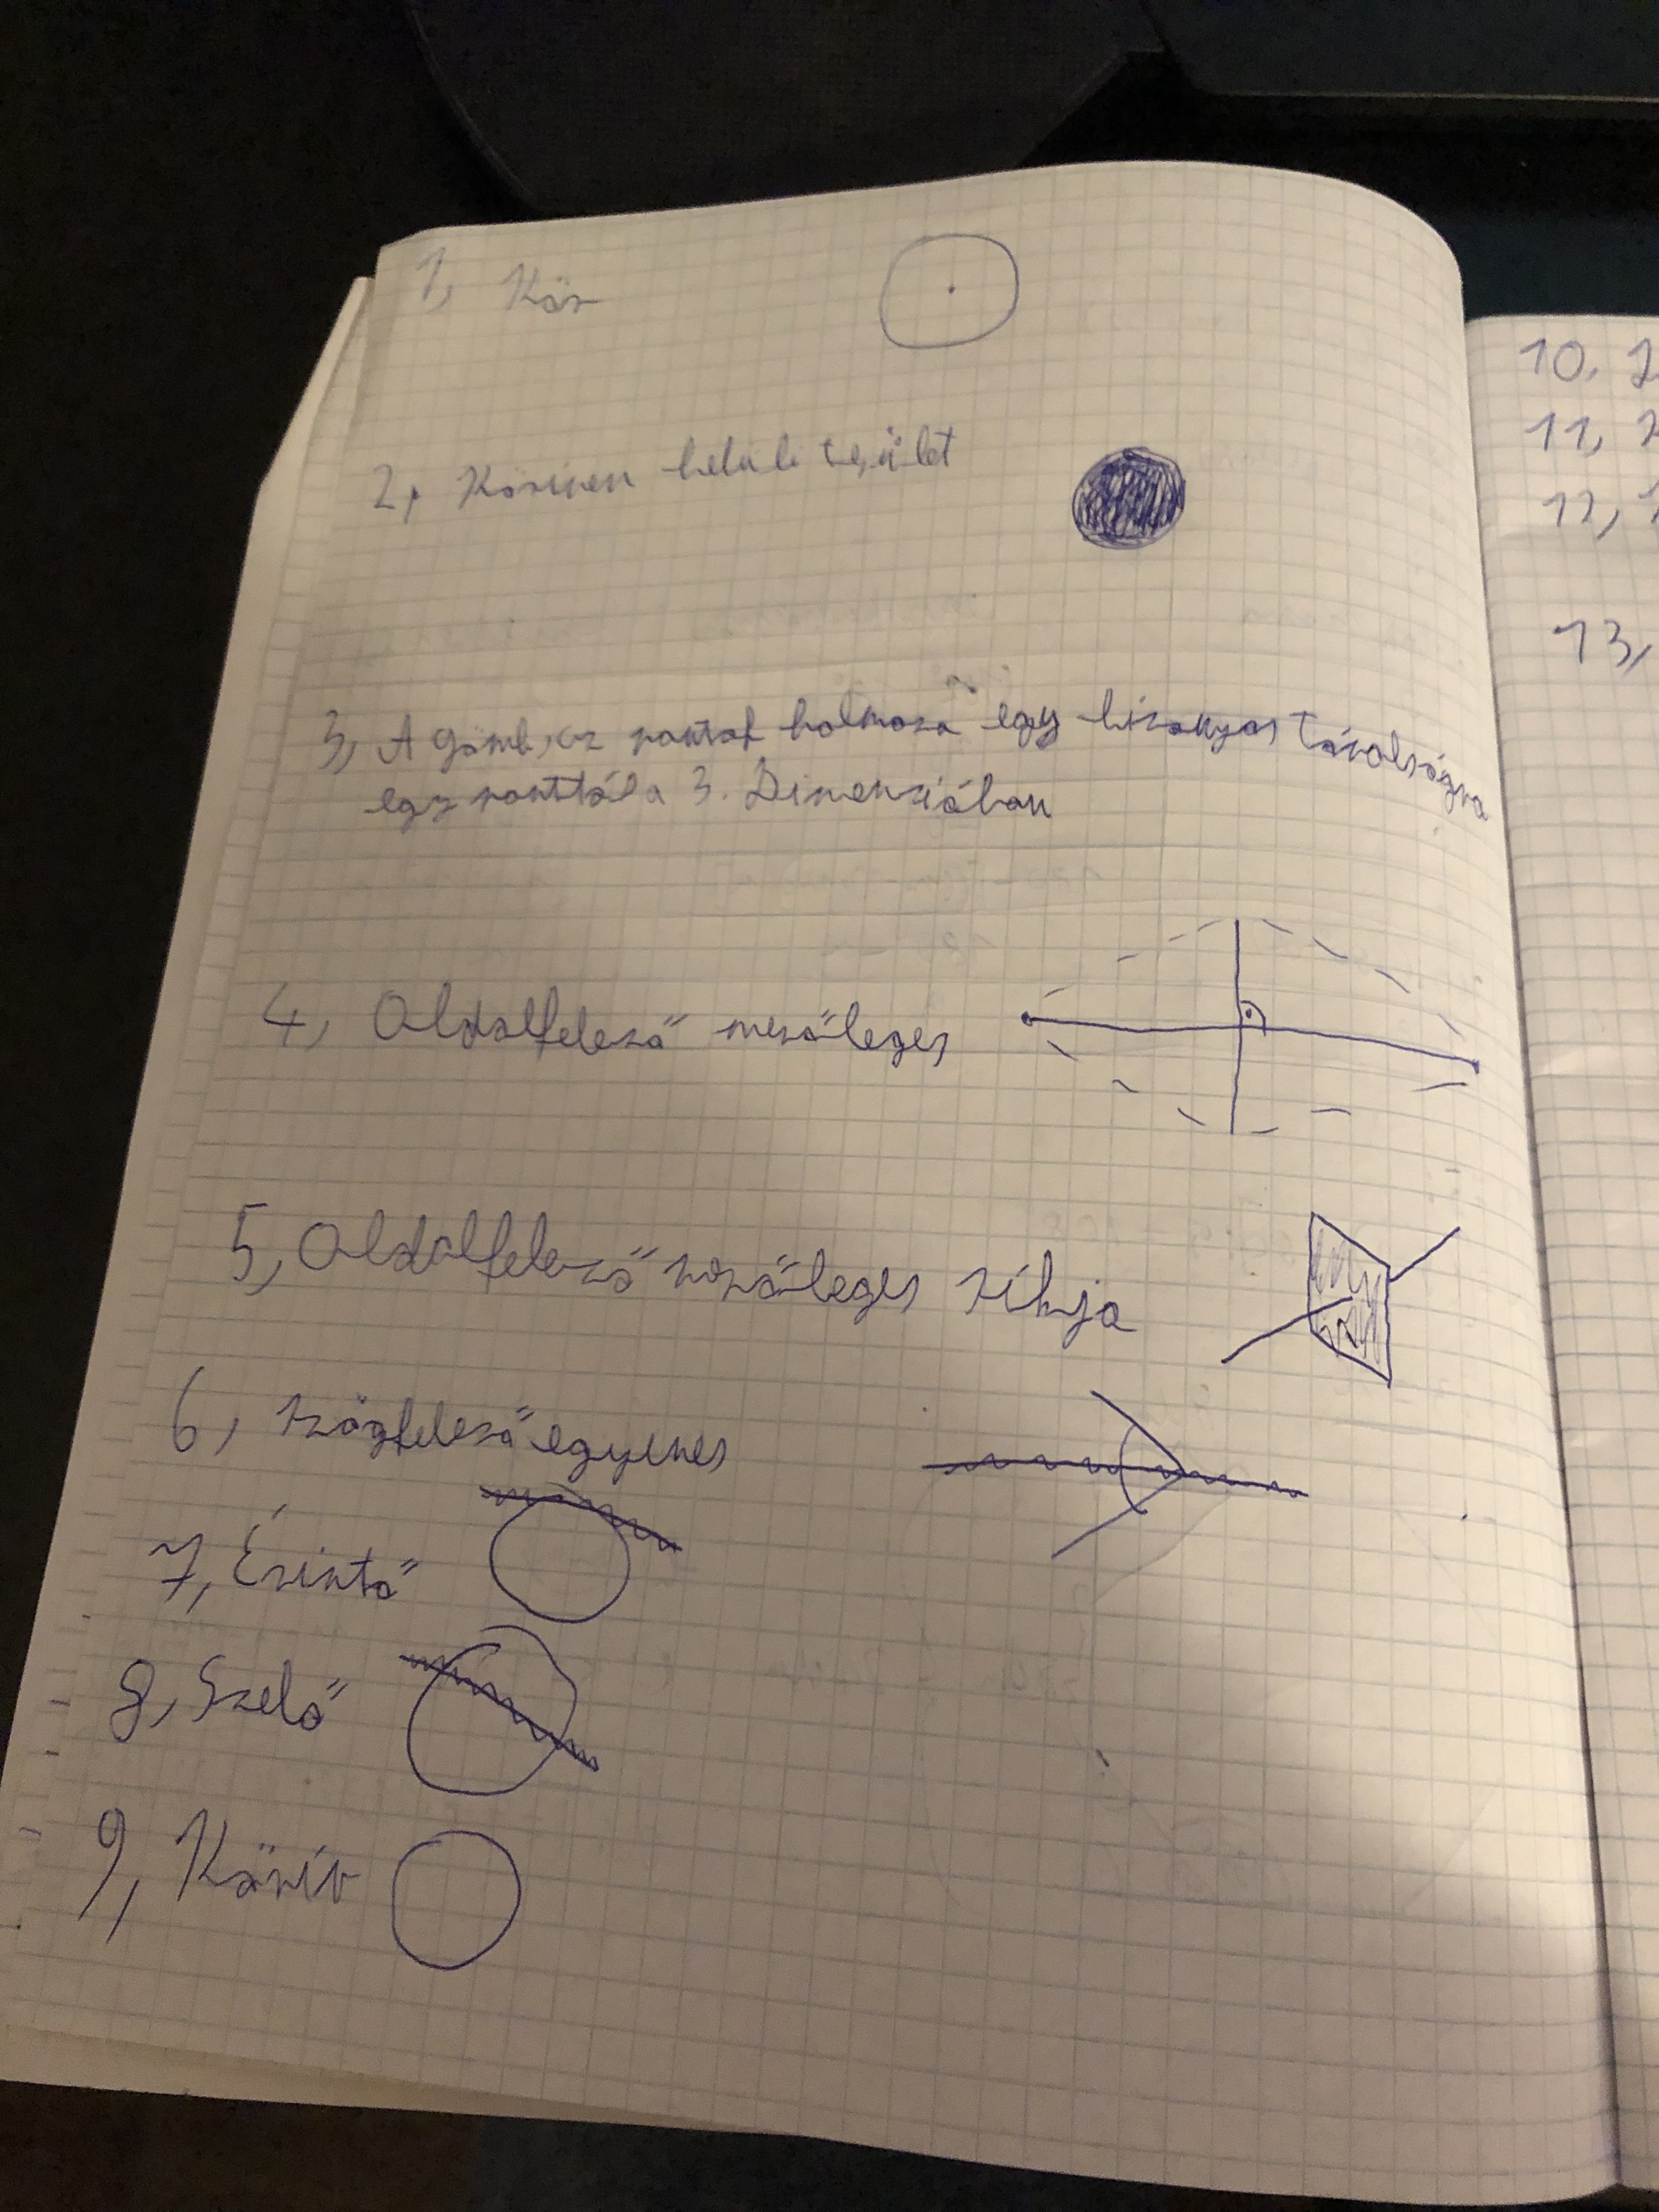 1, Kör
2, Körinen belüli terület
3, A gömb, az pontok halmaza egy bizonyos távolságra
egy ponttól a 3. Dimenzióban
4, Oldalfelező merőleges
5, Oldalfelező merőleges síkja
6, szögfelező egyenes
7, Érintő
8, Szelő
9, Körív
10,
11,
12,
13,